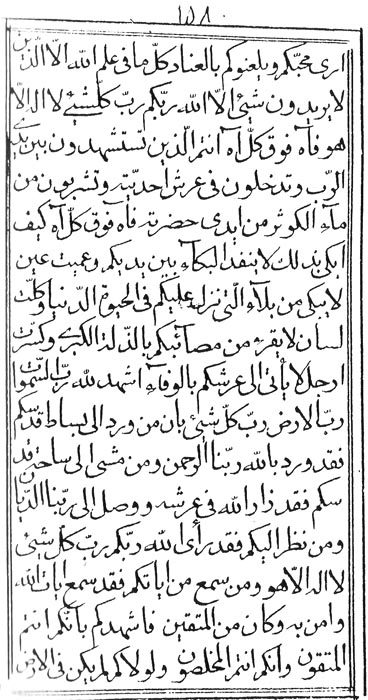 ١٥٨
ارى محبّكم ويلعنوكم بالعناد كلّ ما فى علم الله الّا الّذين
لا يريدون شيئ الّا الله ربّكم ربّ كلّشيئ لا اله الّا
هو فآه فوق كلّ اه انتم الّذين تستشهدون بين يدى
الرّب وتدخلون فى عرش احديّته وتشربون من
مآء الكوثر من ايدى حضرته فآه فوق كلّ آه كيف
ابكى بذلك لا ينفد البكآء بين يديكم وعميت عين
لا يبكى من بلآء الّتى نزل عليكم فى الحيوة الدّنيا وكلّت
لسان لا يقرء من مصآئبكم بالذّلة الكبرى وكسرت
ارجل لا يأتى الى عرشكم بالوفآء اشهد لله ربّ السّموات
ربّ الارض ربّ كلّ شيئ بان من ورد الى بساط قدسكم
فقد ورد بالله ربّنا الرحمن ومن مشى الى ساحت قد
سكم فقد زار الله فى عرشه ووصل الى ربّنا الديّا
ومن نظر اليكم فقد رأى الله ربّكم ربّ كلّ شيئ
لا اله الّا هو ومن سمع من اياتكم فقد سمع ايات الله
وامن به وكان من المتقين فاشهدكم بانكم انتم
المتقون وانكم انتم المخلصون ولولاكم لم يكن فى الارض